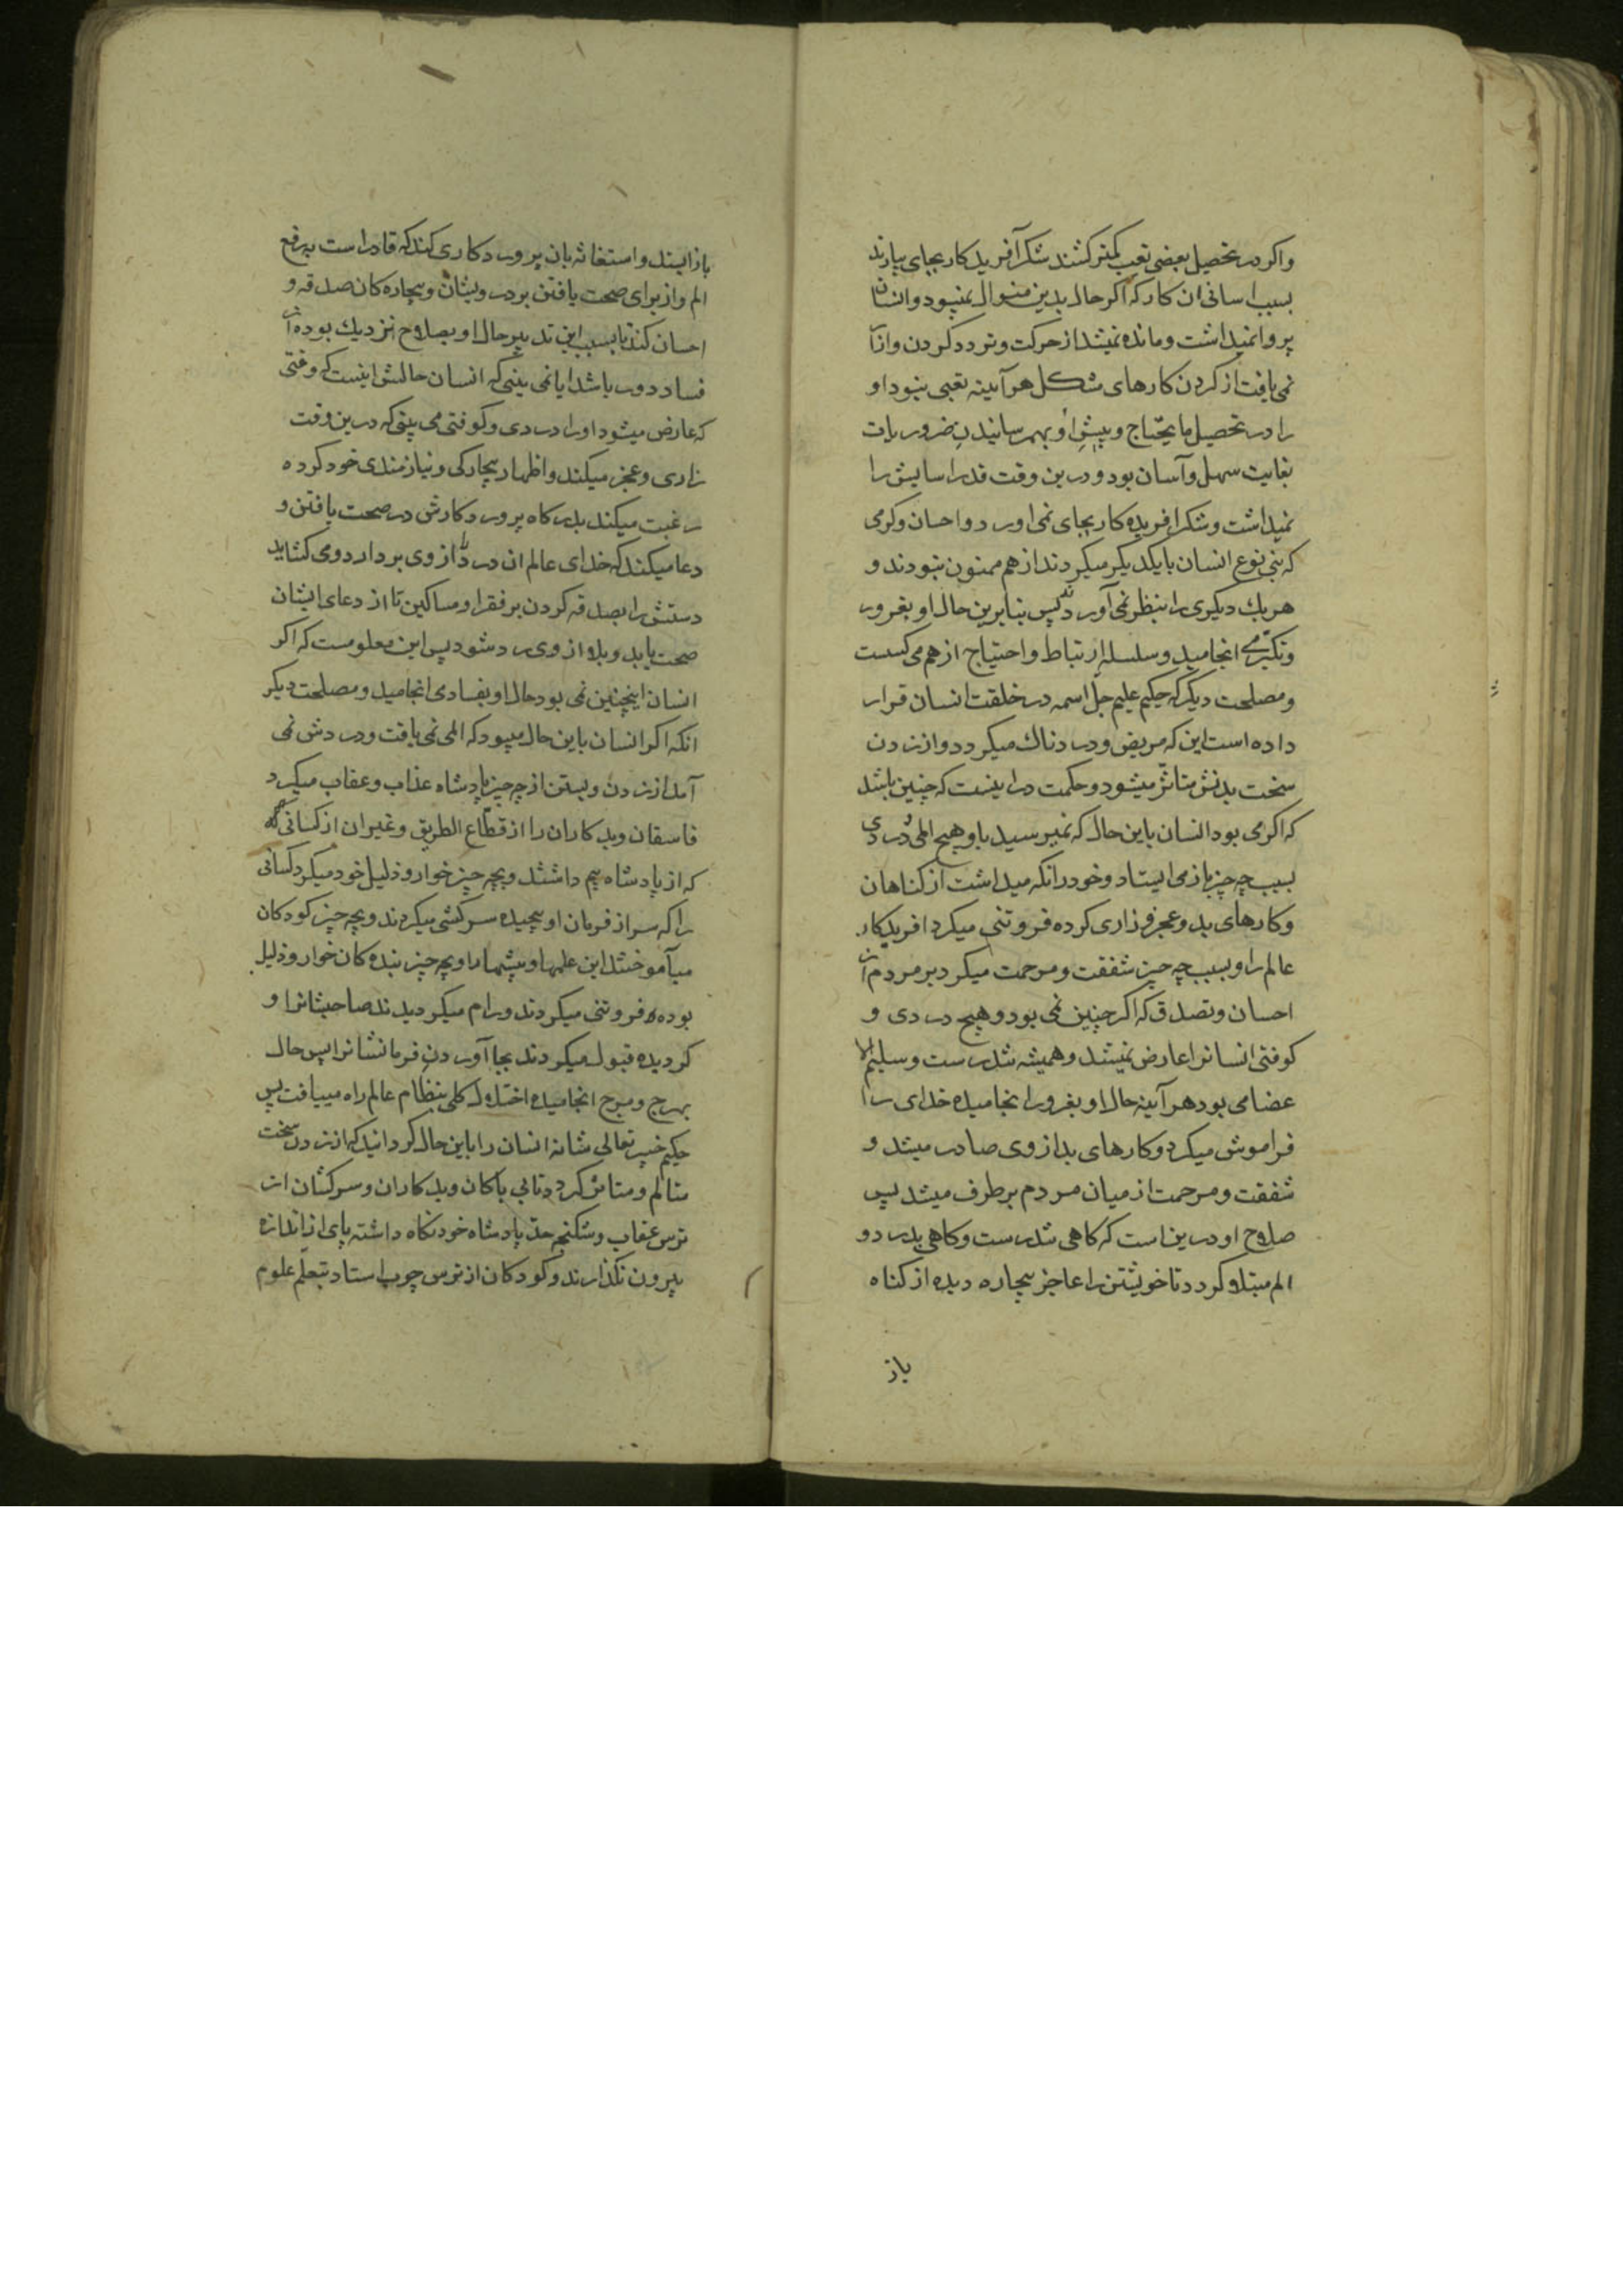 واکر در تحصیل بعضی تعب کمتر کشند شکر آفریدکار بجای بیارند
بسبب اسانی ان کار که اکر حال بدین منوال نمیبود و انسان
پروا نمیداشت و مانده نمیشد از حرکت و تردد کردن و ازار
نمی یافت از کردن کارهای مشکل هر آینه تعبی نبود او
را در تحصیل ما یحتاج و بپیش او بهم رسانیدن ضروریات
بغایت سهل و آسان بود و درین وقت قدر اسایش را
نمیداشت و شکر افریده کار بجای نمی اورد و احسان و کرمی
که بنی نوع انسان بایکدیکر میکردند از هم ممنون نبودند و
هریك دیکری را بنظر نمی آوردند پس بنابرین حال او بغرور
و تکبر می انجامید و سلسله ارتباط و احتیاج از هم می کسست
و مصلحت دیکر که حکیم علیم جل اسمه در خلقت انسان قرار
داده است این که مریض و دردناك میکردد و از زدن
سخت بدنش متاثر میشود و حکمت دراینست که چنین باشد
که اکر می بود انسان باین حال که نمیرسید باو هیچ المی و دردی
بسبب چه چیز باز می ایستاد و خود را نکه میداشت از کناهان
و کارهای بد و عجز و زاری کرده فروتنی میکرد افریدکار
عالم را و بسبب چه چیز شفقت و مرحمت میکرد بر مردم از
احسان و تصدق که اکر چنین نمی بود و هیچ دردی و
کوفتی انسانرا عارض نمیشد و همیشه تندرست و سلیم الا
عضا می بود هر آینه حال او بغرور انجامیده خدای را
فراموش میکرد و کارهای بد از وی صادر میشد و
شفقت و مرحمت از میان مردم برطرف میشد پس
صلاح او درین است که کاهی تندرست و کاهی بدرد و
الم مبتلا کردد تا خویشتن را عاجز بیچاره دیده از کناه
باز
باز ایستد و استغاثه بان پروردکاری کند که قادر است برفع
الم و از برای صحت یافتن بر درویشان و بیچاره کان صدقه و
احسان کند تا بسبب این تدبیر حال او بصلاح نزدیك بوده از
فساد دور باشد ایا نمی بینی که انسان حالش اینست که وقتی
که عارض میشود او را دردی و کوفتی می بینی که درین وقت
زاری و عجز میکند و اظهار بیچارکی و نیازمندی خود کرده
رغبت میکند بدرکاه پروردکارش در صحت یافتن و
دعا میکند که خدای عالم ان درد را از وی بردارد و می کشاید
دستش را بصدقه کردن بر فقرا و مساکین تا از دعای ایشان
صحت یابد و بلا از وی رد شود پس این معلومست که اکر
انسان اینچنین نمی بود حال او بفسادی انجامید و مصلحت دیکر
انکه اکر انسان باین حال میبود که المی نمی یافت و دردش نمی
آمد از زدن و بستن از چه چیز پادشاه عذاب و عقاب میکرد
فاسقان و بدکاران را از قطاع الطریق و غیر ان از کسانی که
که از پادشاه بیم داشتند و بچه چیز خوار و ذلیل خود میکرد کسانی
را که سر از فرمان او پیچیده سرکشی میکردند و بچه چیز کودکان
میآموختند این علمها و پیشها را و بچه چیز بنده کان خوار و ذلیل
بوده فروتنی میکردند و رام میکردیدند صاحبشانرا و
کردیده قبول میکردند بجا آوردن فرمانشانرا پس حال
بهرج و مرج انجامیده اختلال کلی بنظام عالم راه مییافت پس
حکیم خبیر تعالی شانه انسان را باین حال کردانید که از زدن سخت
متالم و متاثر کردد تا بی باکان و بدکاران و سرکشان از
ترس عقاب و شکنجه حد پادشاه خود نکاه داشته پای از اندازه
بیرون نکذارند و کودکان از ترس چوب استاد بتعلم علوم